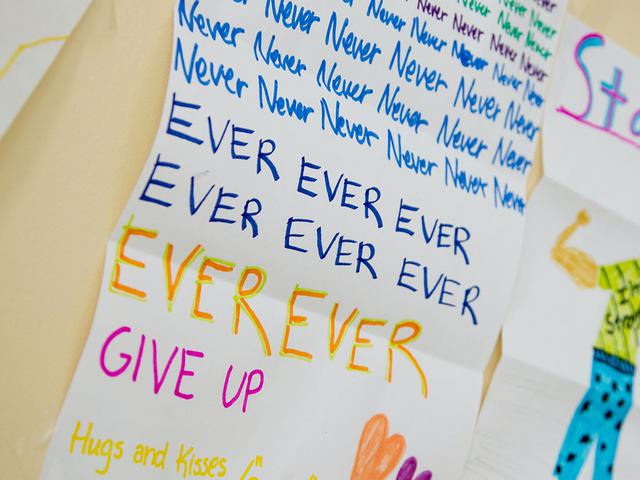 Never Never Never
Never Never Never Never Never
Never Never Never Never Never Never
Never Never Never Never Never Never
Never Never Never Never Never Never
EVER EVER EVER
EVER EVER EVER
EVER EVER
GIVE UP
Hugs and Kisses
St
I'm
Strong